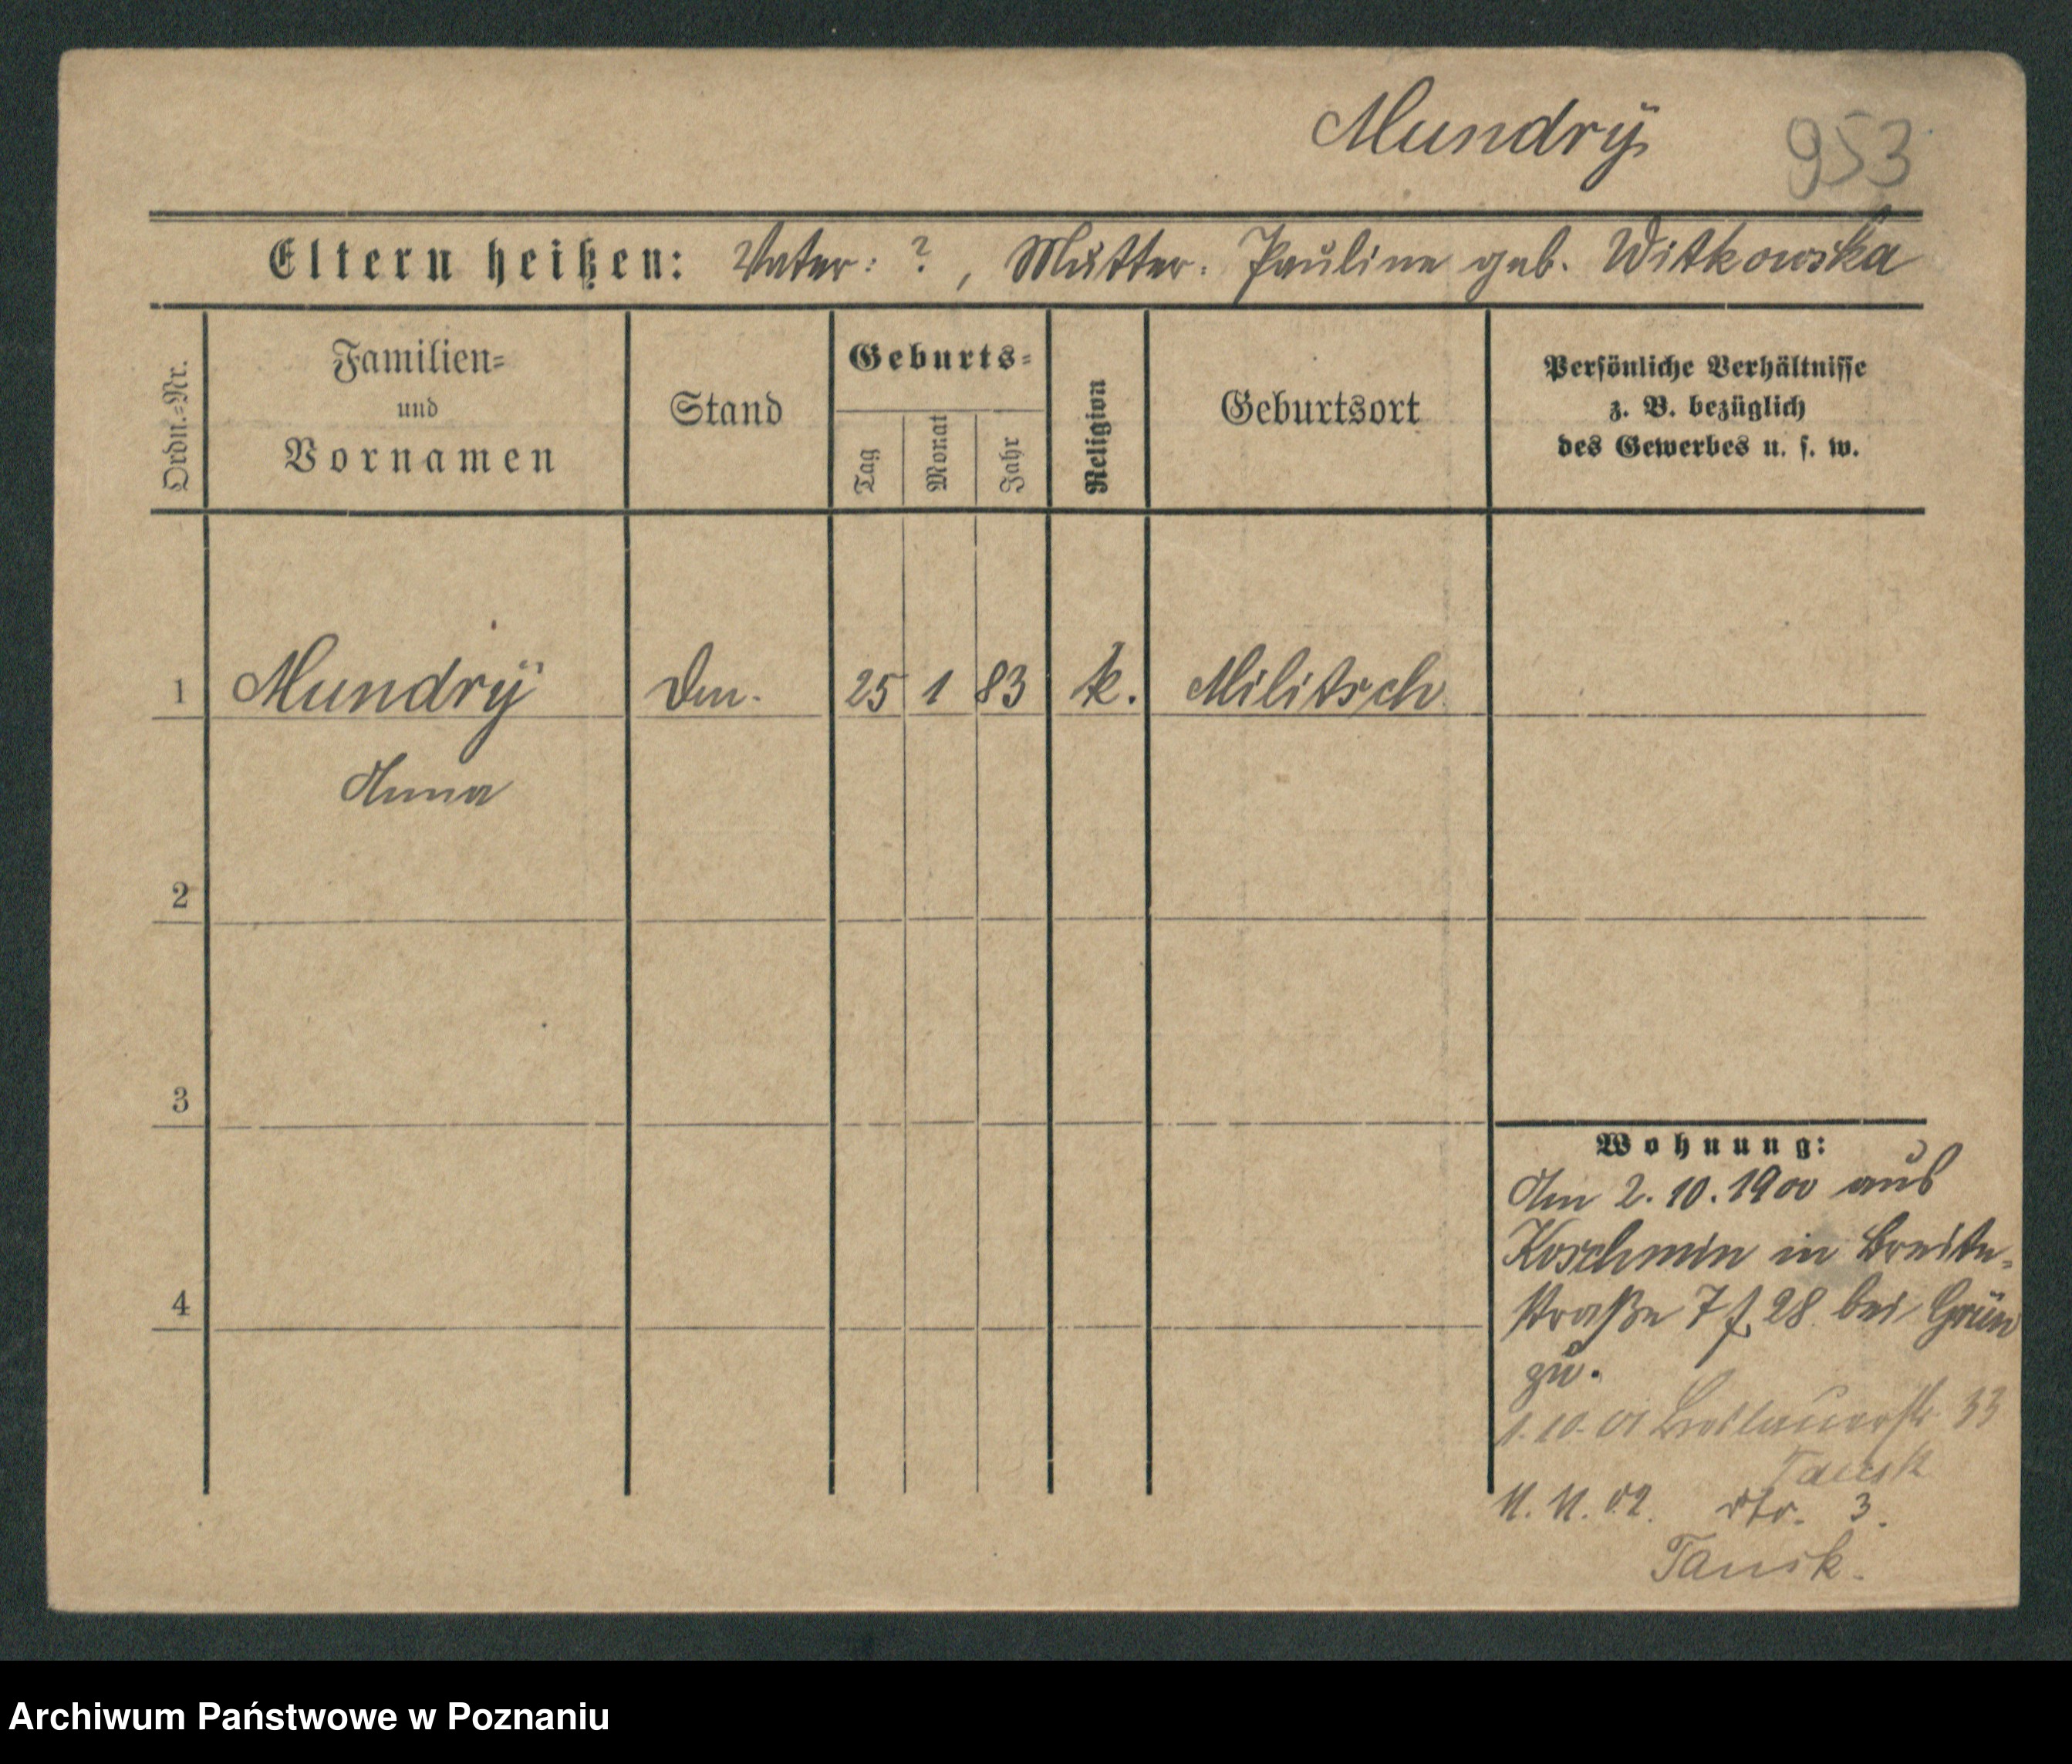 Mundrÿ
953
Eltern heißen: Vater: ?, Mutter: Pauline geb. Witkowska
Ordn.=Nr.
Familien=
und
Vornamen
Stand
Geburts=
Tag
Monat
Jahr
Religion
Geburtsort
Persönliche Verhältnisse
z. B. bezüglich
des Gewerbes u. s. w.
1 Mundrÿ 25 1 83 k. Militsch
Anna
2
3
4
Wohnung:
Am 2.10.1900 aus
Koschmin in Breite-
straße 7 f. 28 bei Grün
zu.
1.10.01 Breslauerstr 33
Tausk
11.11.02. 3.
Tausk.
Archiwum Państwowe w Poznaniu